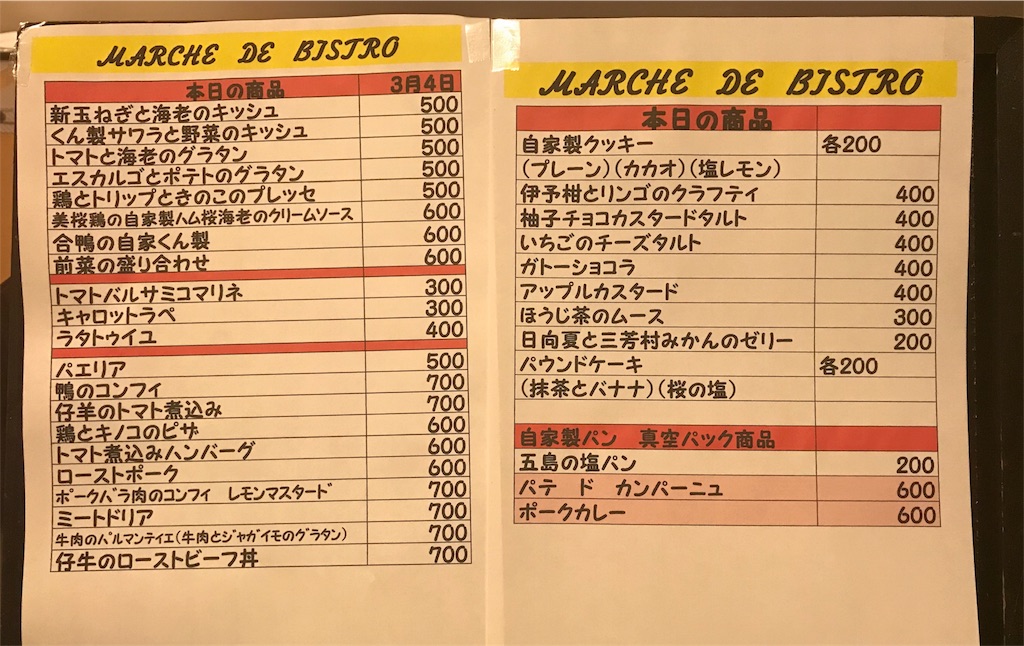 MARCHE DE BISTRO
本日の商品 3月4日
新玉ねぎと海老のキッシュ 500
くん製サワラと野菜のキッシュ 500
トマトと海老のグラタン 500
エスカルゴとポテトのグラタン 500
鶏とトリップときのこのプレッセ 500
美桜鶏の自家製ハム桜海老のクリームソース 600
合鴨の自家くん製 600
前菜の盛り合わせ 600
トマトバルサミコマリネ 300
キャロットラペ 300
ラタトゥイユ 400
パエリア 500
鴨のコンフィ 700
仔羊のトマト煮込み 700
鶏とキノコのピザ 600
トマト煮込みハンバーグ 600
ローストポーク 600
ポークバラ肉のコンフィ レモンマスタード 700
ミートドリア 700
牛肉のパルマンティエ(牛肉とジャガイモのグラタン) 700
仔牛のローストビーフ丼 700
MARCHE DE BISTRO
本日の商品
自家製クッキー 各200
(プレーン)(カカオ)(塩レモン)
伊予柑とリンゴのクラフティ 400
柚子チョコカスタードタルト 400
いちごのチーズタルト 400
ガトーショコラ 400
アップルカスタード 400
ほうじ茶のムース 300
日向夏と三芳村みかんのゼリー 200
パウンドケーキ 各200
(抹茶とバナナ)(桜の塩)
自家製パン 真空パック商品
五島の塩パン 200
パテ ド カンパーニュ 600
ポークカレー 600